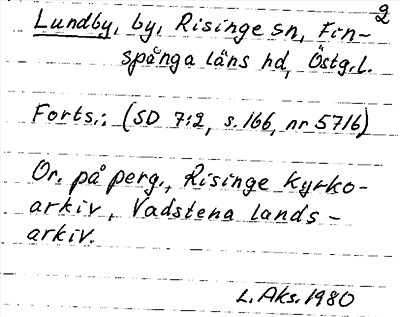 2
Lundby, by, Risinge sn, Fin-
spånga läns hd, Östg.l.
Forts.: (SD 7:2, s.166, nr 5716)
Or. på perg., Risinge kyrko-
arkiv, Vadstena lands-
arkiv.
L. Aks. 1980